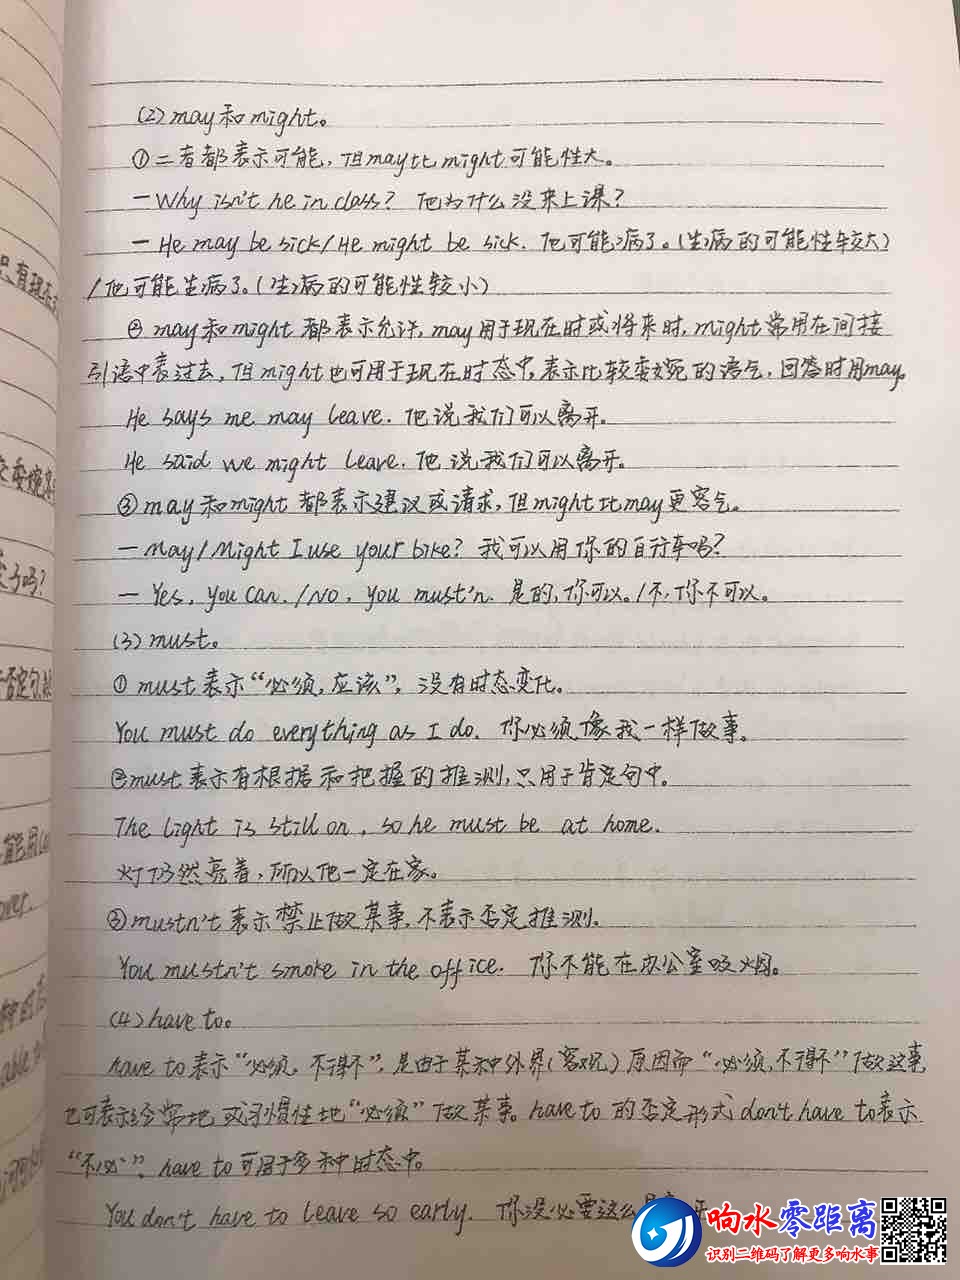 (2) may和might。
①二者都表示可能，但may比might可能性大。
—Why isn't he in class? 他为什么没来上课？
—He may be sick/He might be sick. 他可能病了。(生病的可能性较大)
/他可能生病了。(生病的可能性较小)
②may和might都表示允许，may用于现在时或将来时，might常用在间接
引语中表过去，但might也可用于现在时态中，表示比较委婉的语气，回答时用may。
He says me may leave. 他说我们可以离开。
He said we might leave. 他说我们可以离开。
③may和might都表示建议或请求，但might比may更客气。
—May/Might I use your bike? 我可以用你的自行车吗？
—Yes, you can. /No, you must'n. 是的，你可以。/不，你不可以。
(3) must。
①must表示“必须，应该”，没有时态变化。
You must do everything as I do. 你必须像我一样做事。
②must表示有根据和把握的推测，只用于肯定句中。
The light is still on, so he must be at home.
灯仍然亮着，所以他一定在家。
③mustn't表示禁止做某事，不表示否定推测。
You mustn't smoke in the office. 你不能在办公室吸烟。
(4) have to。
have to表示“必须，不得不”，是由于某种外界(客观)原因而“必须，不得不”做这事
也可表示经常地或习惯性地“必须”做某事。have to的否定形式don't have to表示
“不必”，have to可用于多种时态中。
You don't have to leave so early. 你没必要这么
响水零距离
识别二维码了解更多响水事